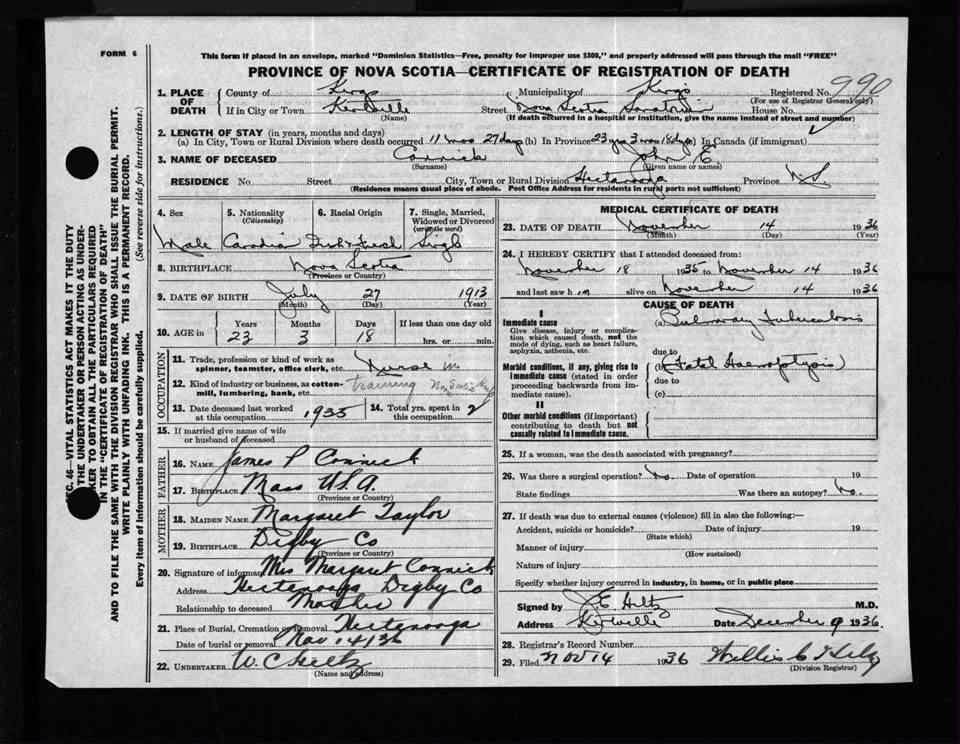 FORM 6
This form if placed in an envelope, marked "Dominion Statistics—Free, penalty for improper use $300," and properly addressed will pass through the mail "FREE"
PROVINCE OF NOVA SCOTIA—CERTIFICATE OF REGISTRATION OF DEATH
990
1. PLACE OF DEATH County of Kings Municipality of Kings Registered No.
(For use of Registrar General only)
If in City or Town Kentville Street Nova Scotia Sanatorium House No.
(Name) (If death occurred in a hospital or institution, give the name instead of street and number)
2. LENGTH OF STAY (in years, months and days)
(a) In City, Town or Rural Division where death occurred 11 mos 27 days (b) In Province 23 yrs 3 mos 18 dys (c) In Canada (if immigrant)
3. NAME OF DECEASED Connick John E.
(Surname) (Given name or names)
RESIDENCE No. Street City, Town or Rural Division Hectanooga Province N.S
(Residence means usual place of abode. Post Office Address for residents in rural parts not sufficient)
4. Sex 5. Nationality (Citizenship) 6. Racial Origin 7. Single, Married, Widowed or Divorced (write the word)
Male Canadian Irish & French Single
8. BIRTHPLACE Nova Scotia
(Province or Country)
9. DATE OF BIRTH July 27 1913
(Month) (Day) (Year)
10. AGE in Years Months Days If less than one day old
23 3 18 hrs. or min.
OCCUPATION
11. Trade, profession or kind of work as spinner, teamster, office clerk, etc. Nurse in
12. Kind of industry or business, as cotton-mill, lumbering, bank, etc. training
13. Date deceased last worked at this occupation 1935 14. Total yrs. spent in this occupation 2
15. If married give name of wife or husband of deceased
FATHER
16. NAME James P Connick
17. BIRTHPLACE Mass U.S.A.
(Province or Country)
MOTHER
18. MAIDEN NAME Margaret Taylor
19. BIRTHPLACE Digby Co
(Province or Country)
20. Signature of informant Mrs Margaret Connick
Address Hectanooga Digby Co
Relationship to deceased Mother
21. Place of Burial, Cremation or Removal Hectanooga
Date of burial or removal Nov 14/36
22. UNDERTAKER W. C. Hiltz
(Name and address)
MEDICAL CERTIFICATE OF DEATH
23. DATE OF DEATH November 14 1936
(Month) (Day) (Year)
24. I HEREBY CERTIFY that I attended deceased from:
November 18 1935 to November 14 1936
and last saw him alive on November 14 1936
CAUSE OF DEATH
I
Immediate cause (a) Pulmonary Tuberculosis
Give disease, injury or complication which caused death, not the mode of dying, such as heart failure, asphyxia, asthenia, etc.
due to
Morbid conditions, if any, giving rise to immediate cause (stated in order proceeding backwards from immediate cause). (b) (Fatal Haemoptysis)
due to
(c)
II
Other morbid conditions (if important) contributing to death but not causally related to immediate cause.
25. If a woman, was the death associated with pregnancy?
26. Was there a surgical operation? No. Date of operation 19
State findings Was there an autopsy? No.
27. If death was due to external causes (violence) fill in also the following:—
Accident, suicide or homicide? Date of injury 19
(State which)
Manner of injury
(How sustained)
Nature of injury
Specify whether injury occurred in industry, in home, or in public place
Signed by J. E. Hiltz M.D.
Address Kentville Date December 9 1936.
28. Registrar's Record Number
29. Filed Nov 14 1936 Willis C Hiltz
(Division Registrar)
SEC. 46—VITAL STATISTICS ACT MAKES IT THE DUTY
THE UNDERTAKER OR PERSON ACTING AS UNDER-
TAKER TO OBTAIN ALL THE PARTICULARS REQUIRED
IN THE "CERTIFICATE OF REGISTRATION OF DEATH"
AND TO FILE THE SAME WITH THE DIVISION REGISTRAR WHO SHALL ISSUE THE BURIAL PERMIT.
WRITE PLAINLY WITH UNFADING INK. THIS IS A PERMANENT RECORD.
Every item of information should be carefully supplied. (See reverse side for instructions.)